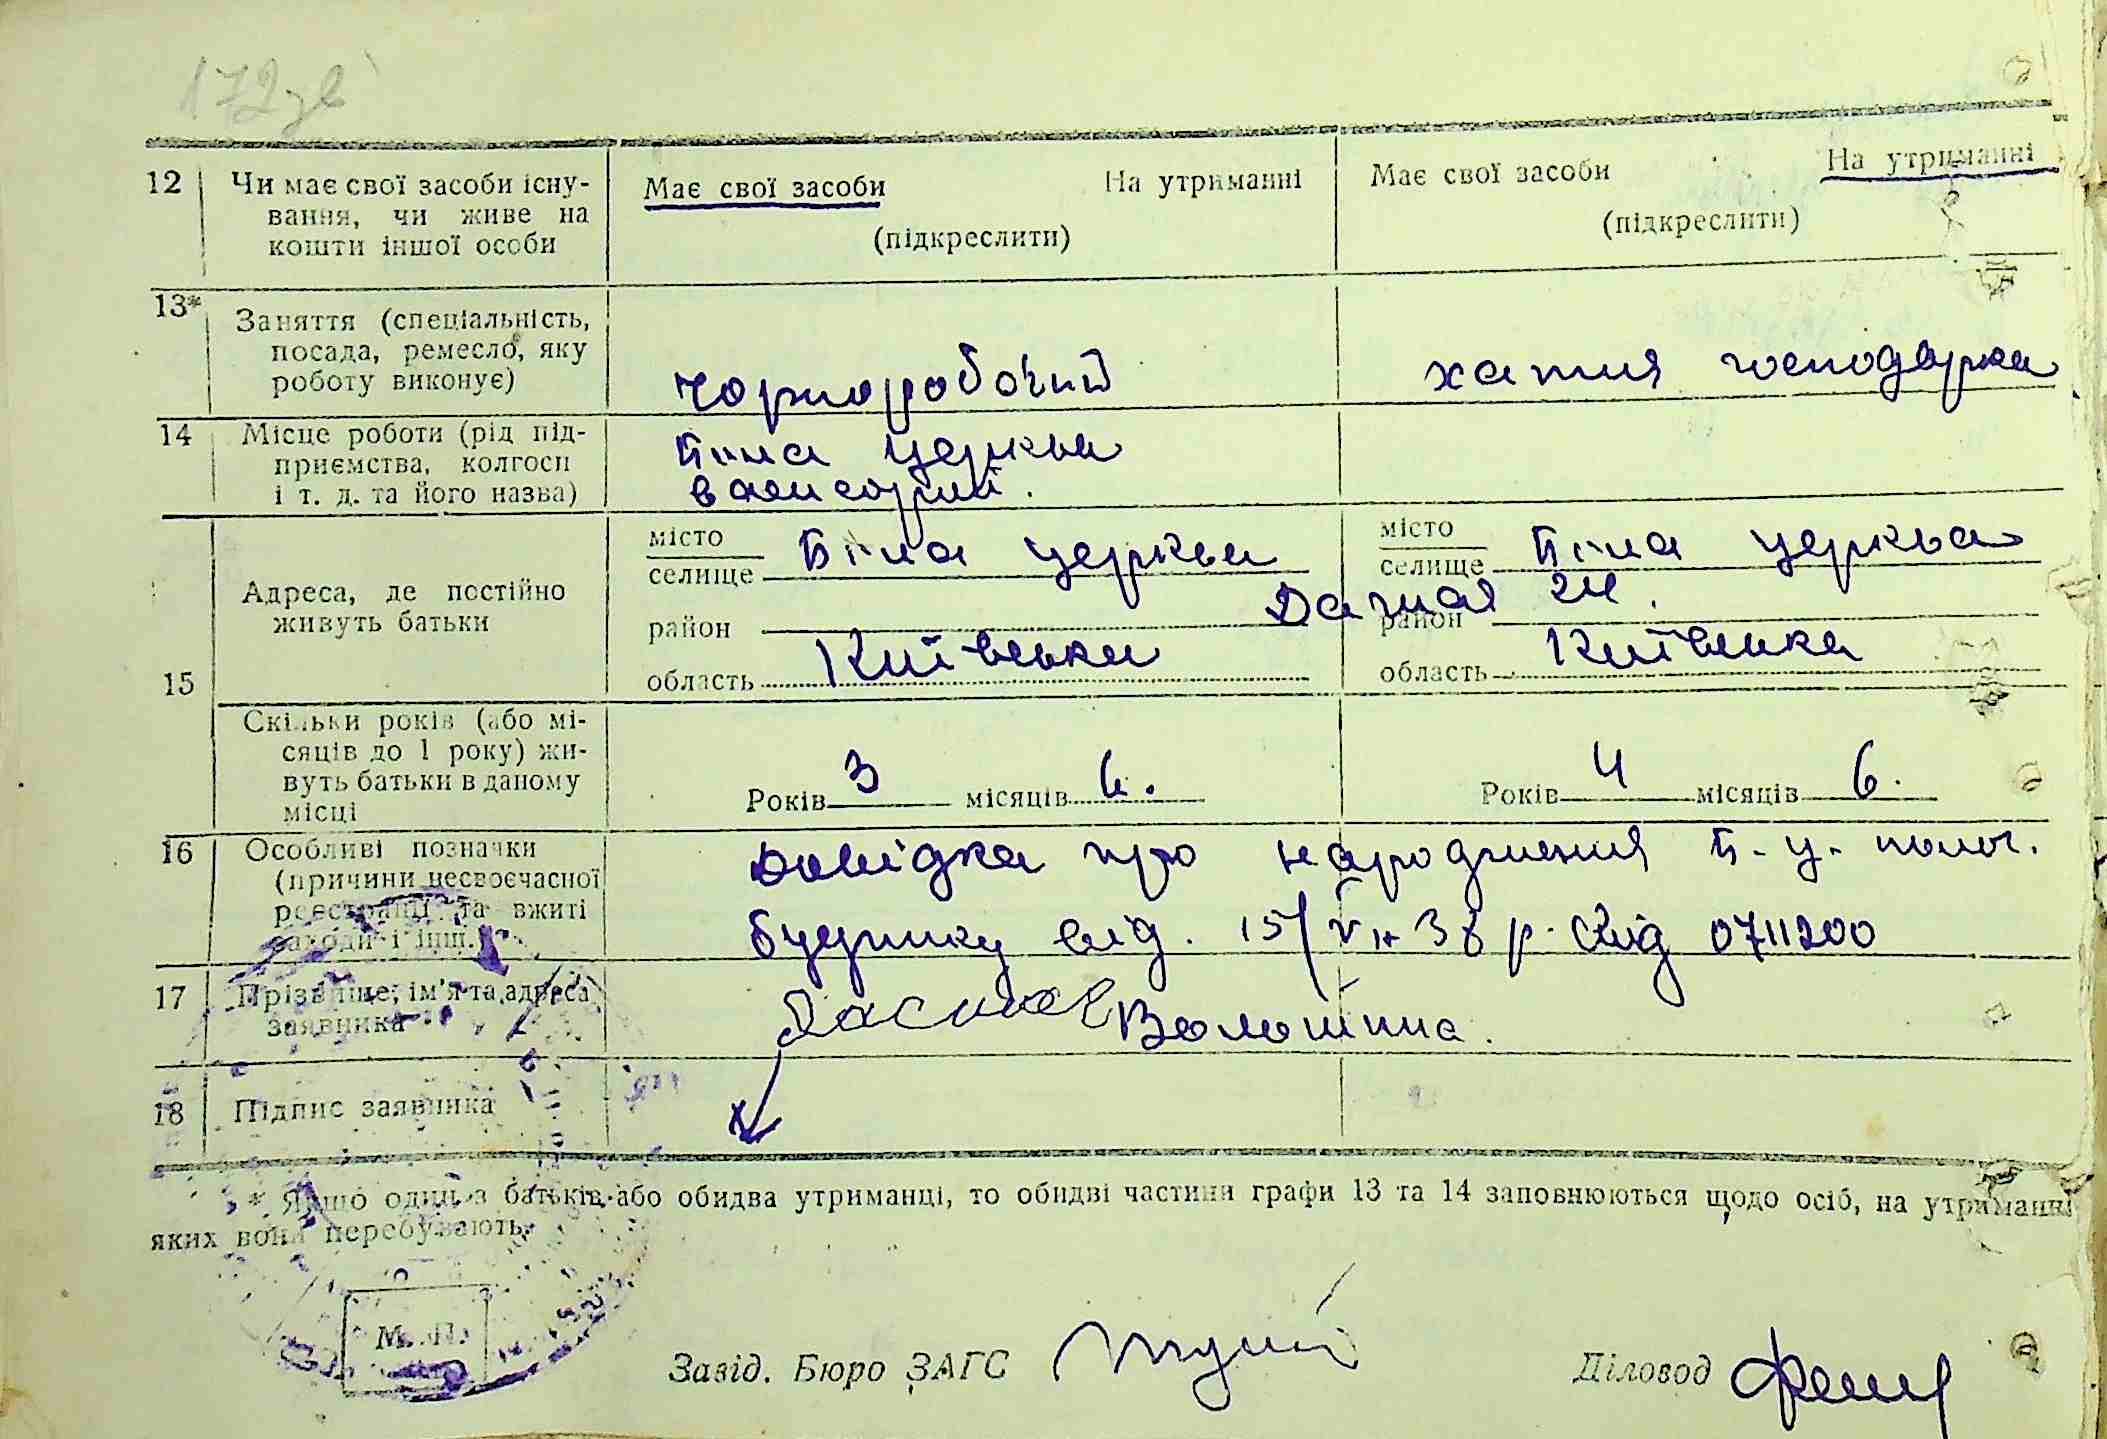 172зв
12 Чи має свої засоби існу-
вання, чи живе на
кошти іншої особи
Має свої засоби На утриманні
(підкреслити)
Має свої засоби На утриманні
(підкреслити)
13* Заняття (спеціальність,
посада, ремесло, яку
роботу виконує)
Чорноробочий
хатня господарка
14 Місце роботи (рід під-
приємства, колгосп
і т. д. та його назва)
Біла церква
15
Адреса, де постійно
живуть батьки
місто
селище Біла церква
район
область Київська
місто
селище Біла церква
Дачная 24.
район
область Київська
Скільки років (або мі-
сяців до 1 року) жи-
вуть батьки в даному
місці
Років 3 місяців 6.
Років 4 місяців 6.
16 Особливі позначки
(причини несвоєчасної
реєстрації та вжиті
заходи і інш.)
Довідка про народження Б. Ц. полог.
будинку від. 15/V 38 р. 0711200
17 Прізвище, ім'я та адреса
заявника
Волошина.
18 Підпис заявника
* Якщо один з батьків або обидва утриманці, то обидві частини графи 13 та 14 заповнюються щодо осіб, на утриманні
яких вони перебувають.
М. П.
Завід. Бюро ЗАГС
Діловод